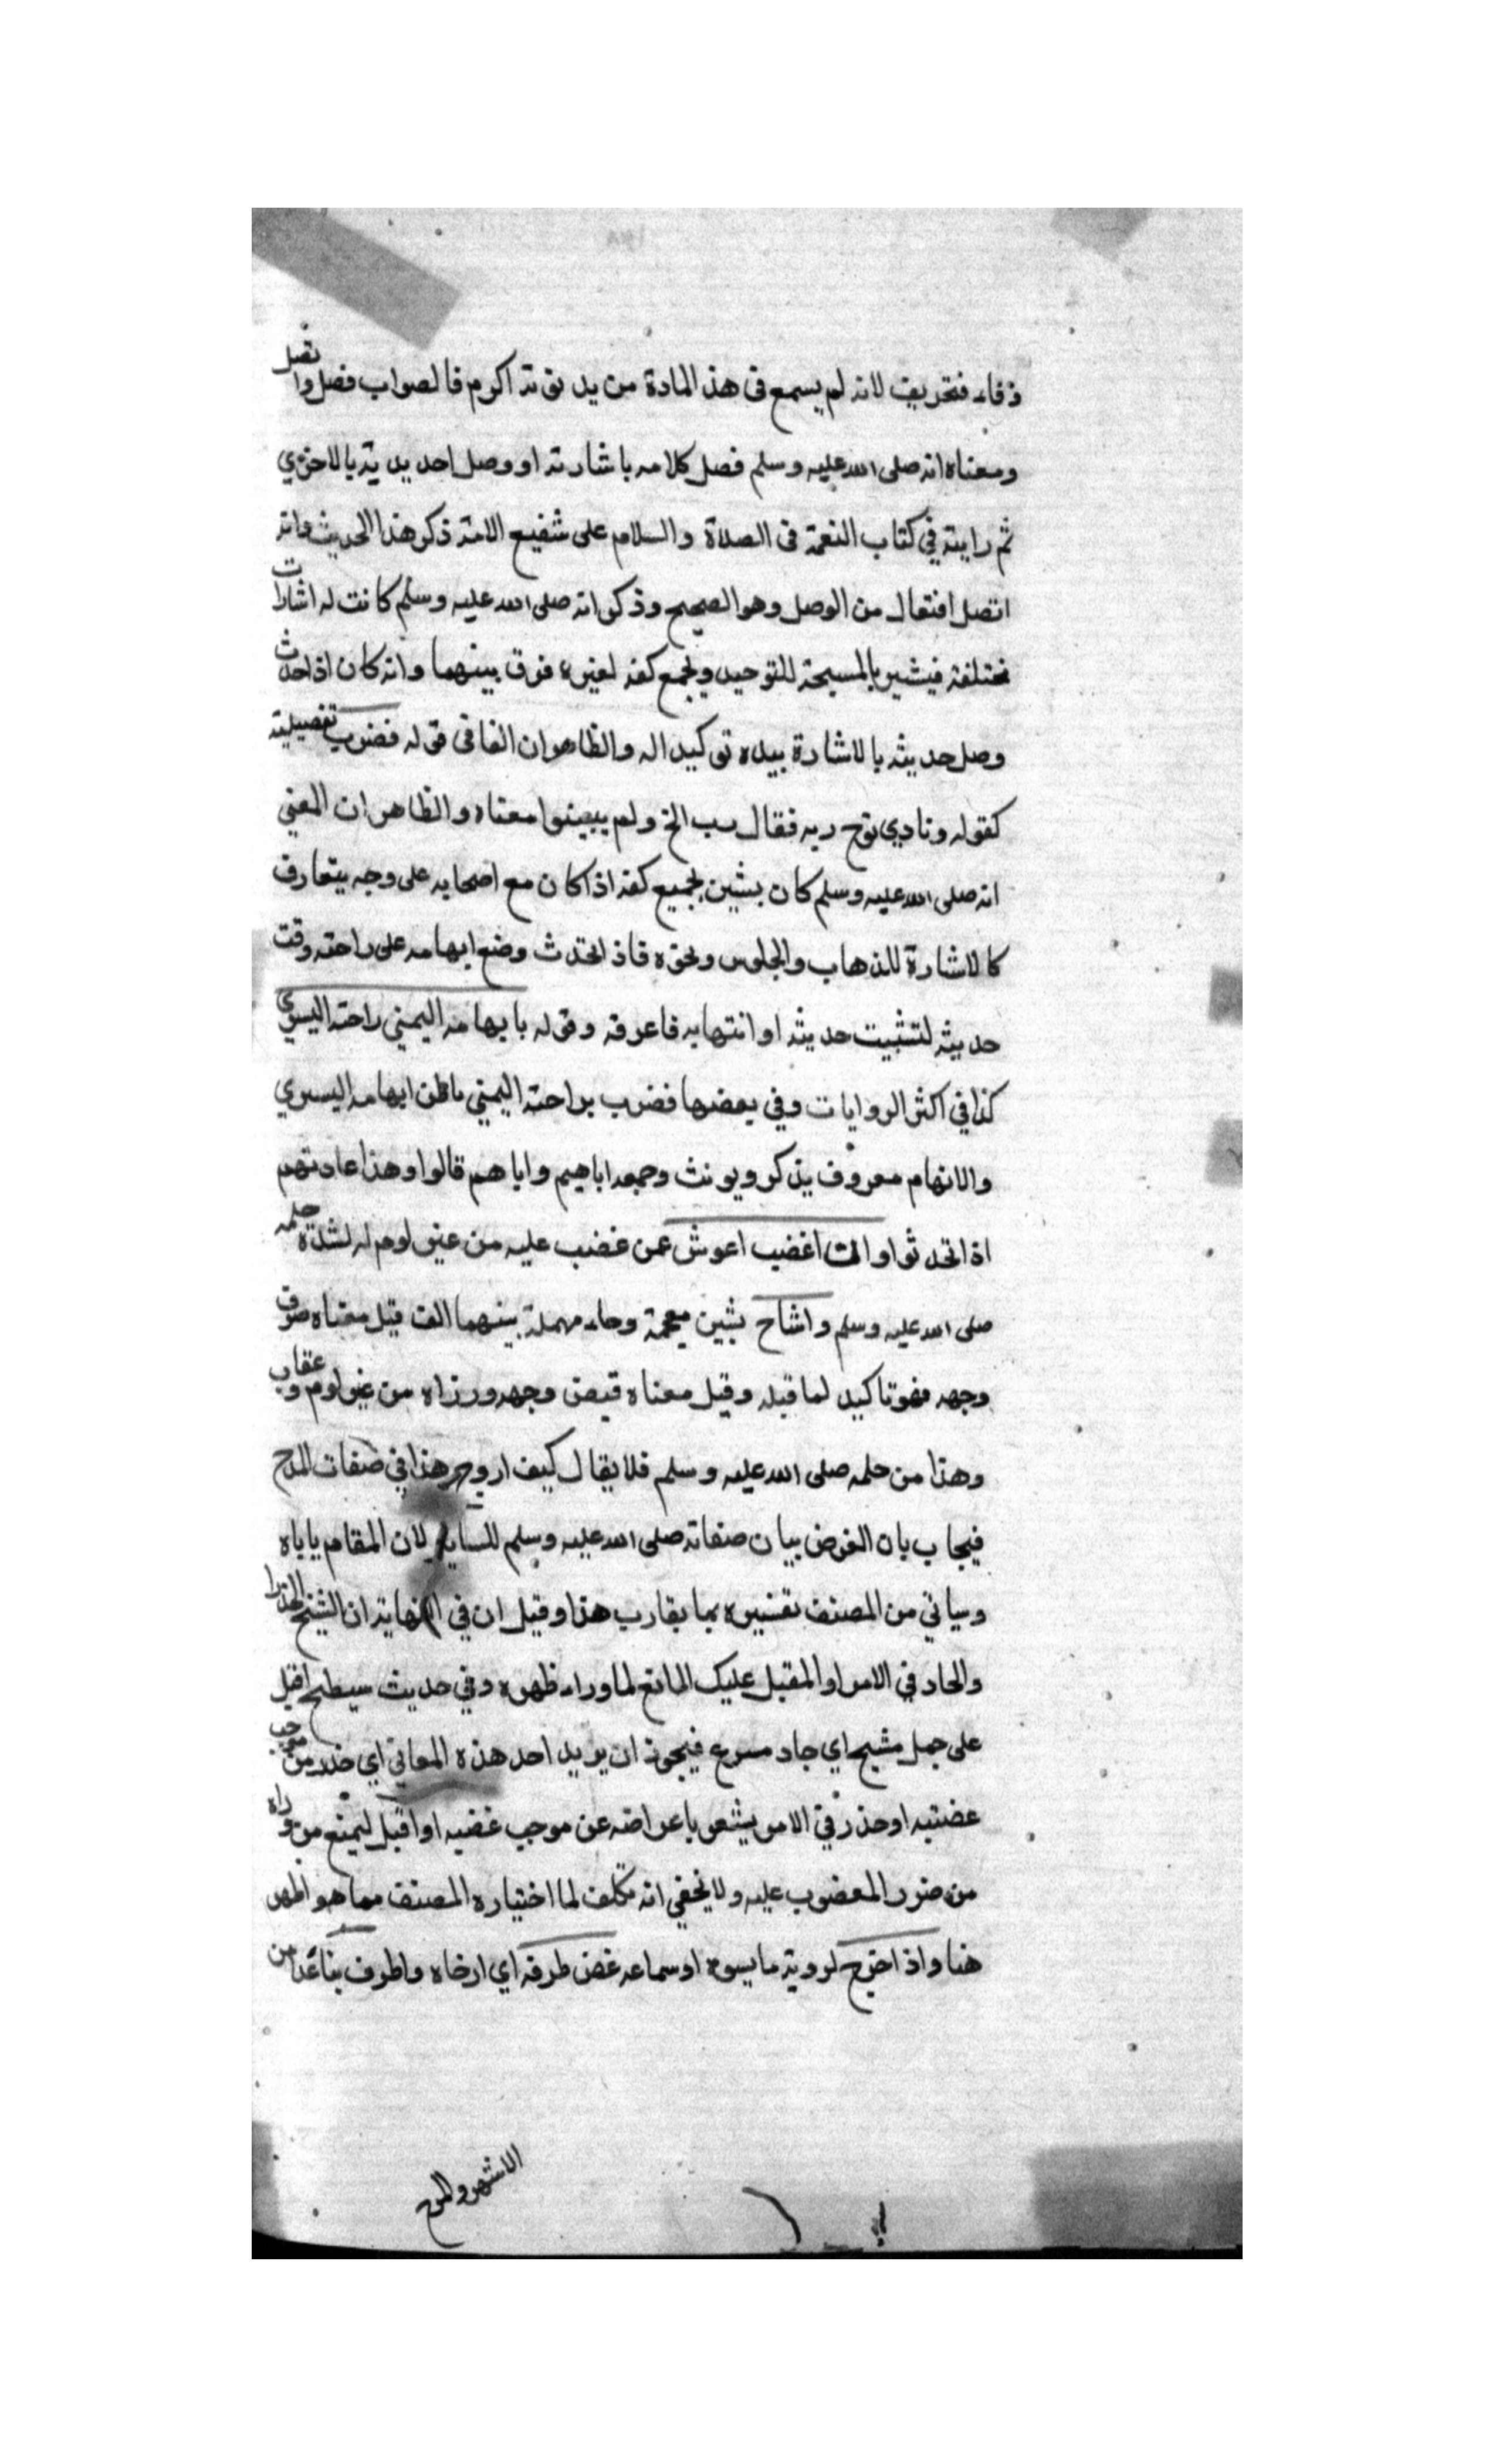 وفاء فتحريف لانه لم يسمع فى هذا المادة من يد يوثق به اكرم فالصواب فصل واتصل
ومعناه انه صلى الله عليه وسلم فصل كلامه باشارته او وصل احد يديه بالاخرى
ثم رايته في كتاب النعمة فى الصلاة والسلام على شفيع الامة ذكر هذا الحديث وانه
اتصل افتعال من الوصل وهو الصحيح وذكر انه صلى الله عليه وسلم كانت له اشارات
مختلفة فيشير بالمسبحة للتوحيد وبجمع كفه لغيره فرق بينهما وانه كان اذا حدث
وصل حديثه بالاشارة بيده توكيدا له والظاهر ان الفا فى قوله فضرب تفصيلية
كقوله ونادي نوح ربه فقال رب الخ ولم يبينوا معناه والظاهر ان المعني
انه صلى الله عليه وسلم كان يشير بجميع كفه اذا كان مع اصحابه على وجه يتعارف
كالاشارة للذهاب والجلوس ونحوه فاذا تحدث وضع ابهامه على راحته وقت
حديثه لتثبيت حديثه او انتهايه فاعرفه وقوله بابهامه اليمني راحته اليسري
كذا في اكثر الروايات وفي بعضها فضرب براحته اليمني باطن ابهامه اليسري
والابهام معروف يذكر ويونث وجمعه اباهيم واباهم قالوا وهذا عادتهم
اذا تحدثوا واذا غضب اعرض عمن غضب عليه من غير لوم له لشدة حلمه
صلى الله عليه وسلم واشاح بشين معجمة وحاء مهملة بينهما الف قيل معناه صرف
وجهه فهو تاكيد لما قبله وقيل معناه قبض وجهه وزواه من غير لوم وعقاب
وهذا من حلمه صلى الله عليه وسلم فلا يقال كيف اورد هذا في صفات المدح
فيجاب بان الغرض بيان صفاته صلى الله عليه وسلم للسايل لان المقام ياباه
وسياتي من المصنف تفسيره بما يقارب هذا وقيل ان في النهاية ان الشيح الحذر
والجاد في الامر او المقبل عليك المانع لما وراء ظهره وفي حديث سطيح اقبل
على جمل مشيح اي جاد مسرع فيجوز ان يريد احد هذه المعاني اي حذر من موجب
غضبه او حذر في الامر يشعر باعراضه عن موجب غضبه او اقبل ليمنع من وراه
من ضرر المغضوب عليه ولا يخفي انه تكلف لما اختياره المصنف مما هو اظهر
هنا واذا فرح لروية ما يسره او سماعه غض طرفه اي ارخاه واطرف بناء علي
الاشهر والمرح